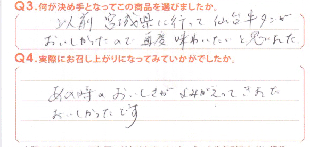 Q3.何が決め手となってこの商品を選びましたか。
以前 宮城県に行って 仙台牛タンが
おいしかったので 再度 味わいたいと思いました
Q4.実際にお召し上がりになってみていかがでしたか。
あの時の おいしさが よみがえってきました
おいしかったです